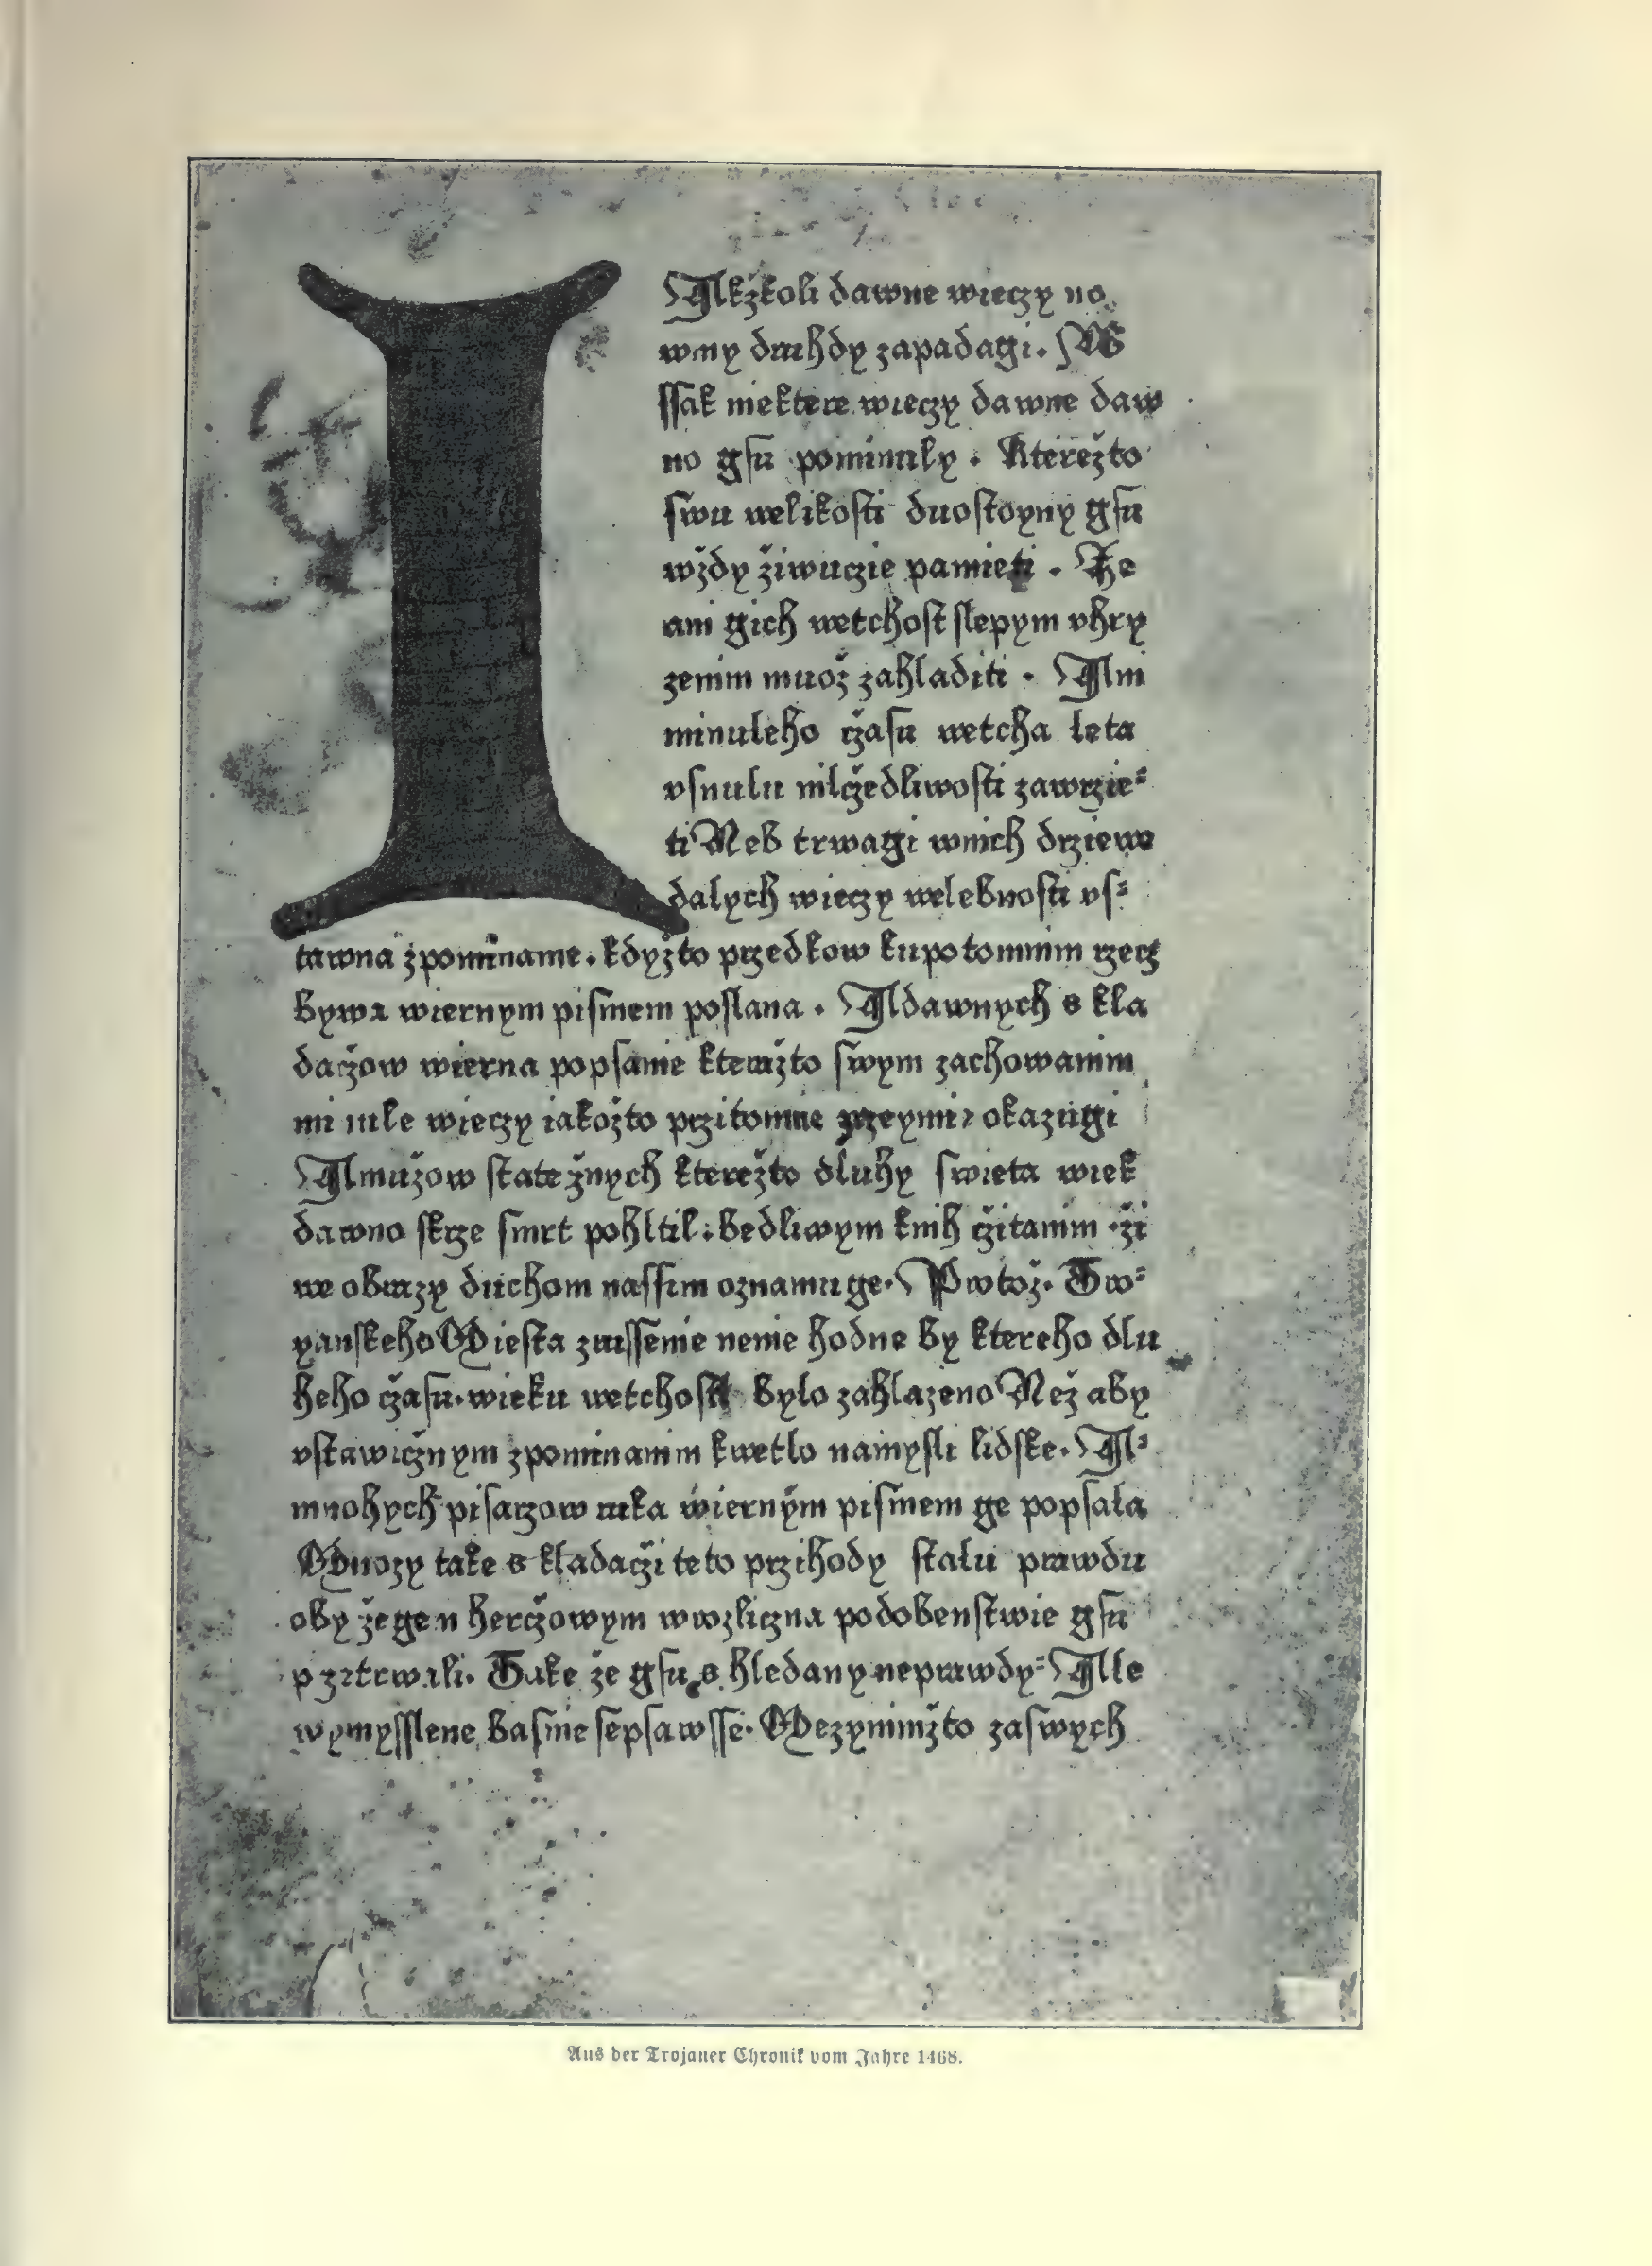 I Akżkoli dawne wieczy no
wmy druhdy zapadagi. W
ſſak niektere wieczy dawne daw
no gſu pominuly. Kterežto
ſwu welikoſti duoſtoyny gſu
wždy žiwuczie pamieti. Že
ani gich wetchoſt ſlepym vhry
zenim muož zahladiti. Ani
minuleho čzaſu wetcha leta
vſnulu mlčzedliwoſti zawrzie⸗
ti Neb trwagi wnich drziewe
dalych wieczy welebnoſti vſ⸗
tawna zpominame. kdyžto przedkow kupotomnim rzecz
bywa wiernym piſmem poſlana. A dawnych skla
daczow wierna popſanie kteražto ſwym zachowanim
mi nule wieczy iakožto przitomne okazugi
A mužow ſtatežnych kterežto dluhy ſwieta wiek
dawno ſkrze ſmrt pohltil: bedliwym knih čzitanim ži
we obrazy duchom naſſim oznamuge. Pwtož. Tro⸗
yanſkeho Mieſta zruſſenie nenie hodne by ktereho dlu
heho čzaſu. wieku wetchoſti bylo zahlazeno Než aby
vſtawičznym zpominanim kwetlo namyſli lidſke. A⸗
mnohych piſarzow ruka wiernym piſmem ge popſala
Mnozy take skladaczi teto przihody ſtalu prawdu
obyžegem herczowym wrozliczna podobenſtwie gſu
pzrterwali. Take že gſu shledany neprawdy⸗ Alle
wymyſſlene baſnie ſepſawſſe. Mezynimžto zaſwych
Aus der Trojaner Chronik vom Jahre 1468.